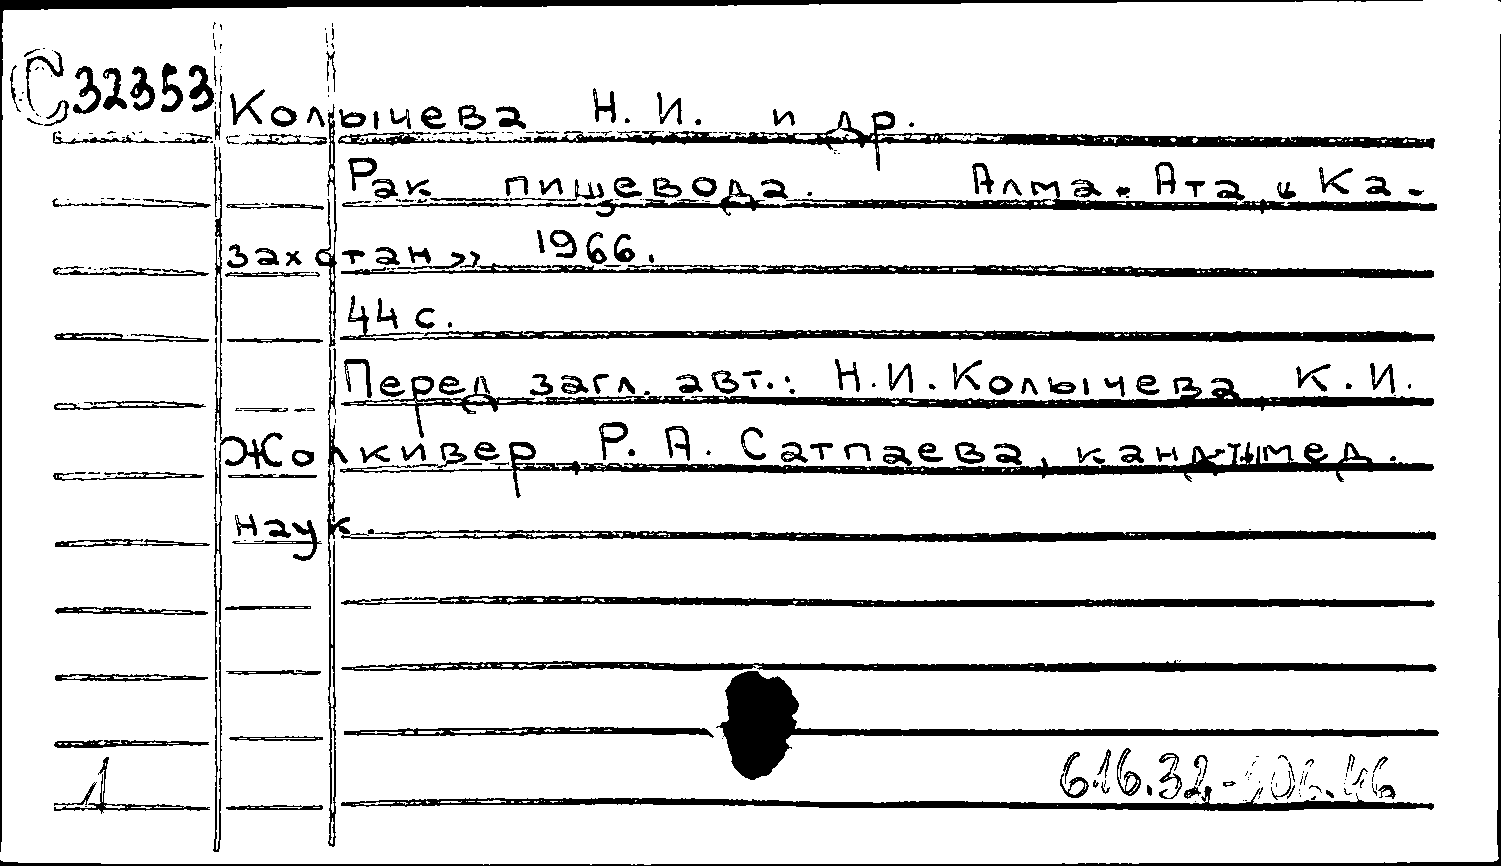 С32353
Колычева Н. И. и др.
Рак пищевода. Алма-Ата, «Ка-
захстан», 1966.
44 с.
Перед загл. авт.: Н.И.Колычева, К.И.
Жолкивер, Р. А. Сатпаева, канд. мед.
наук.
1
616.32-006.46